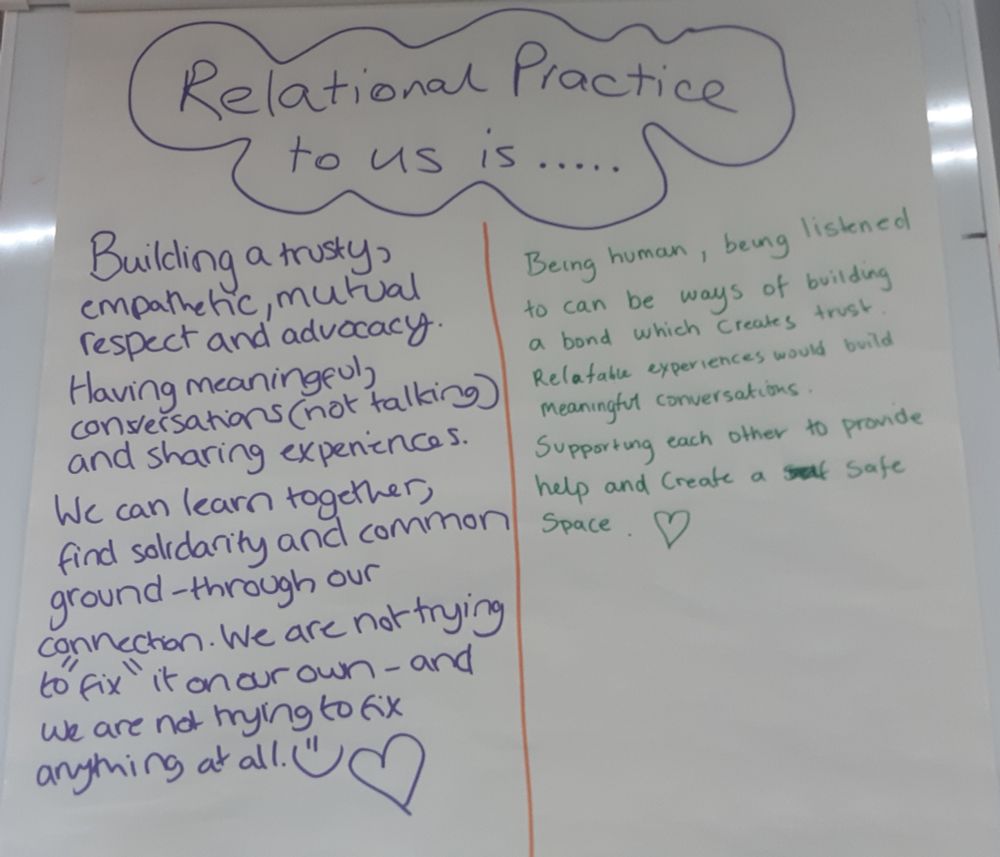 Relational Practice
to us is .....
Building a trusty,
empathetic, mutual
respect and advocacy.
Having meaningful,
conversations (not talking)
and sharing experiences.
We can learn together,
find solidarity and common
ground - through our
connection. We are not trying
to "fix" it on our own - and
we are not trying to fix
anything at all.
Being human, being listened
to can be ways of building
a bond which creates trust.
Relatable experiences would build
meaningful conversations.
Supporting each other to provide
help and create a safe
space.